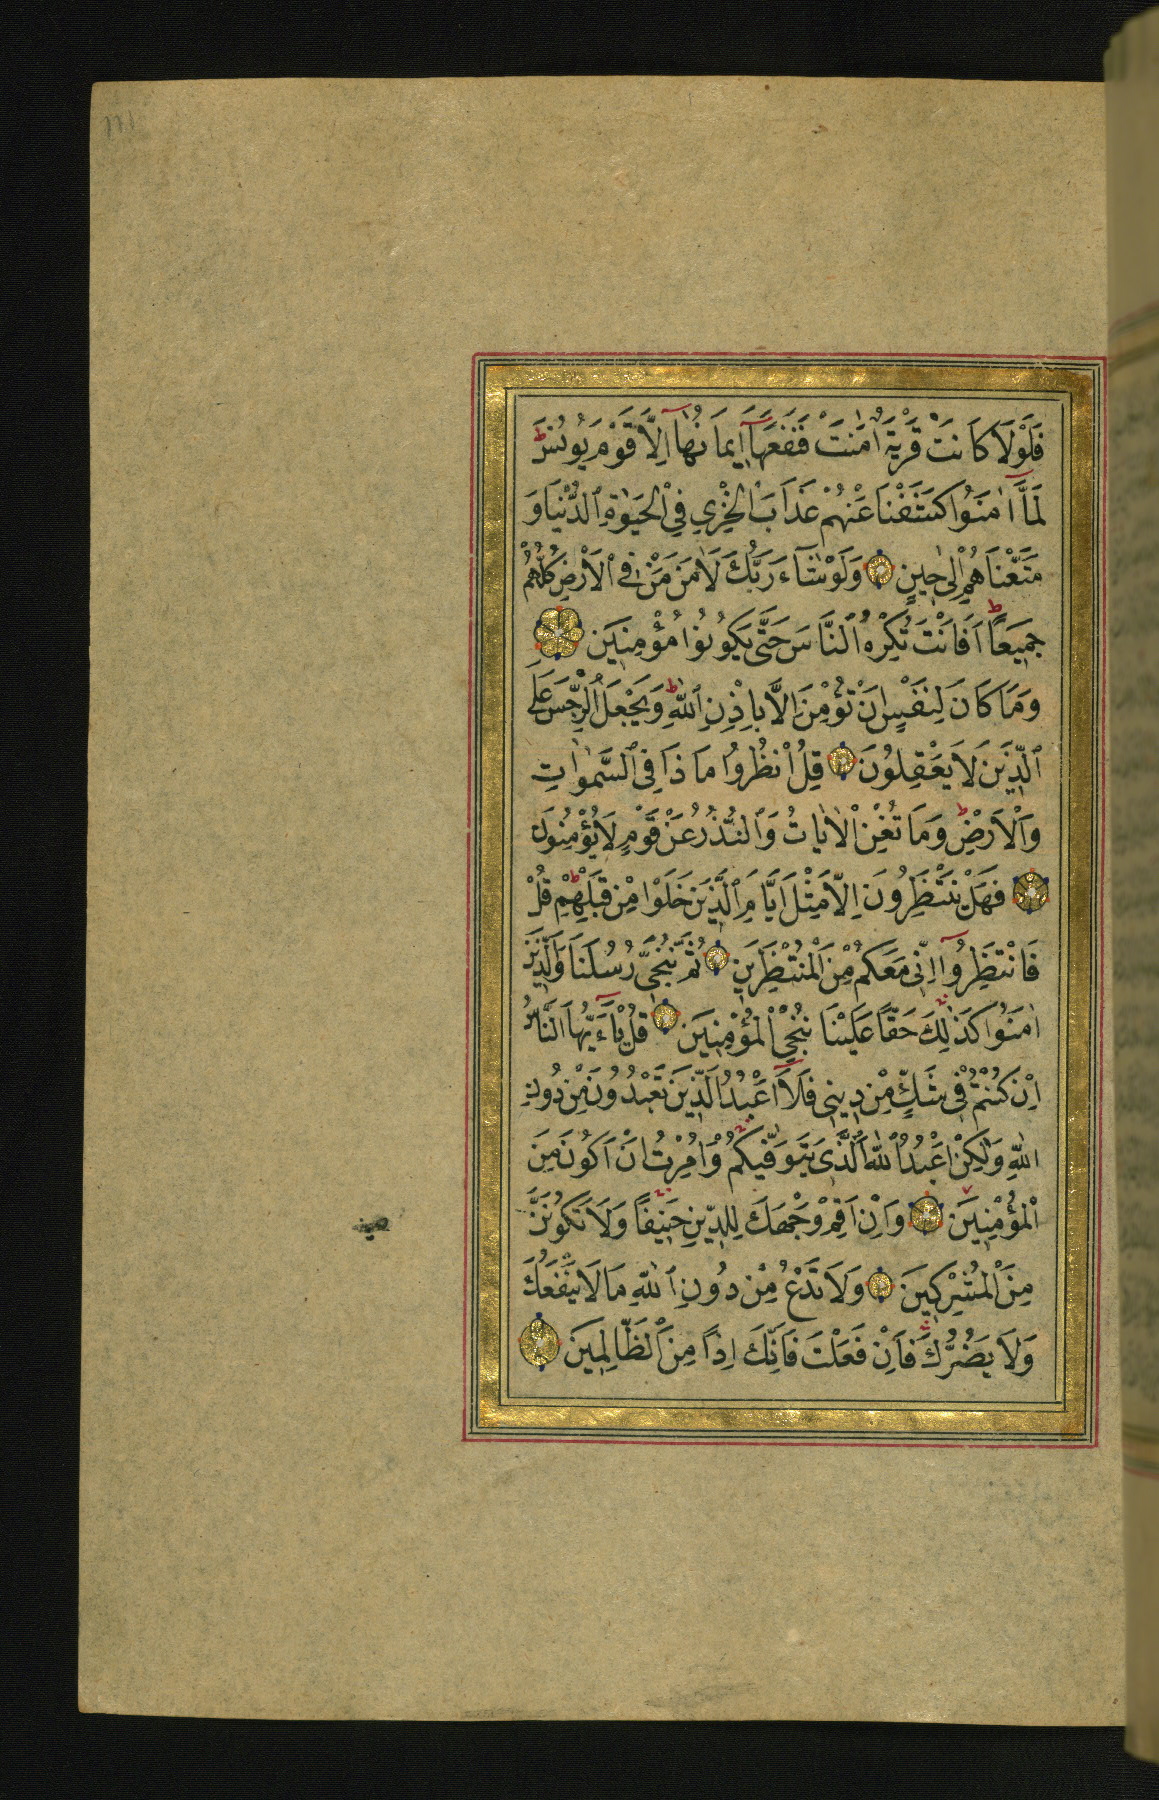 فَلَوْلَا كَانَتْ قَرْيَةٌ اٰمَنَتْ فَنَفَعَهَٓا ا۪يمَانُهَٓا اِلَّا قَوْمَ يُونُسَۜ
لَمَّٓا اٰمَنُوا كَشَفْنَا عَنْهُمْ عَذَابَ الْخِزْيِ فِي الْحَيٰوةِ الدُّنْيَا وَ
مَتَّعْنَاهُمْ اِلٰى ح۪ينٍ وَلَوْ شَٓاءَ رَبُّكَ لَاٰمَنَ مَنْ فِي الْاَرْضِ كُلُّهُمْ
جَم۪يعًاۜ اَفَاَنْتَ تُكْرِهُ النَّاسَ حَتّٰى يَكُونُوا مُؤْمِن۪ينَ
وَمَا كَانَ لِنَفْسٍ اَنْ تُؤْمِنَ اِلَّا بِاِذْنِ اللّٰهِۜ وَيَجْعَلُ الرِّجْسَ عَلَى
الَّذ۪ينَ لَا يَعْقِلُونَ قُلِ انْظُرُوا مَاذَا فِي السَّمٰوَاتِ
وَالْاَرْضِۜ وَمَا تُغْنِي الْاٰيَاتُ وَالنُّذُرُ عَنْ قَوْمٍ لَا يُؤْمِنُونَ
فَهَلْ يَنْتَظِرُونَ اِلَّا مِثْلَ اَيَّامِ الَّذ۪ينَ خَلَوْا مِنْ قَبْلِهِمْۜ قُلْ
فَانْتَظِرُٓوا اِنّ۪ي مَعَكُمْ مِنَ الْمُنْتَظِر۪ينَ ثُمَّ نُنَجّ۪ي رُسُلَنَا وَالَّذ۪ينَ
اٰمَنُوا كَذٰلِكَۚ حَقًّا عَلَيْنَا نُنْجِ الْمُؤْمِن۪ينَ قُلْ يَٓا اَيُّهَا النَّاسُ
اِنْ كُنْتُمْ ف۪ي شَكٍّ مِنْ د۪ين۪ي فَلَٓا اَعْبُدُ الَّذ۪ينَ تَعْبُدُونَ مِنْ دُونِ
اللّٰهِ وَلٰكِنْ اَعْبُدُ اللّٰهَ الَّذ۪ي يَتَوَفّٰيكُمْۚ وَاُمِرْتُ اَنْ اَكُونَ مِنَ
الْمُؤْمِن۪ينَ وَاَنْ اَقِمْ وَجْهَكَ لِلدّ۪ينِ حَن۪يفًاۚ وَلَا تَكُونَنَّ
مِنَ الْمُشْرِك۪ينَ وَلَا تَدْعُ مِنْ دُونِ اللّٰهِ مَا لَا يَنْفَعُكَ
وَلَا يَضُرُّكَۚ فَاِنْ فَعَلْتَ فَاِنَّكَ اِذًا مِنَ الظَّالِم۪ينَ